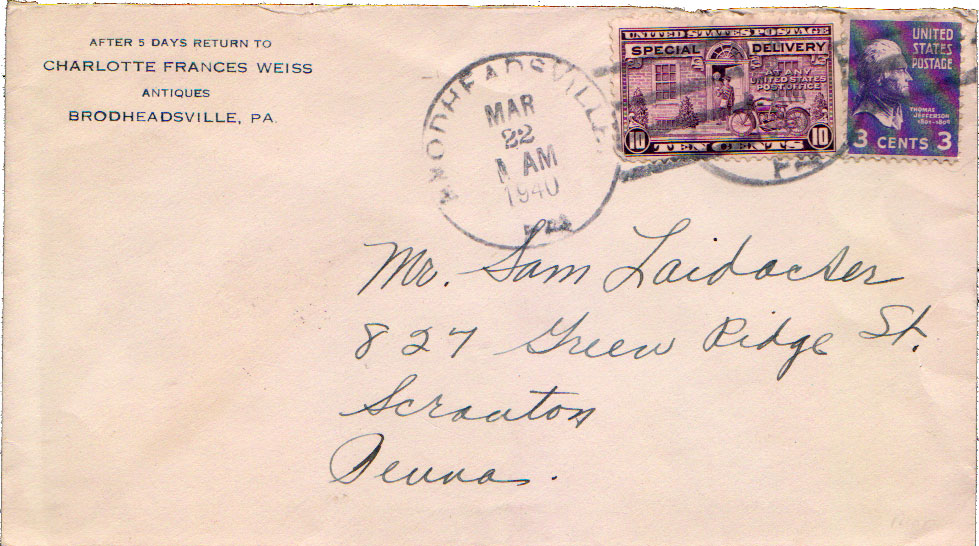 AFTER 5 DAYS RETURN TO
CHARLOTTE FRANCES WEISS
ANTIQUES
BRODHEADSVILLE, PA.
BRODHEADSVILLE
MAR
22
AM
1940
PA
UNITED STATES POSTAGE
SPECIAL DELIVERY
AT ANY
UNITED STATES
POST OFFICE
10 TEN CENTS 10
UNITED
STATES
POSTAGE
THOMAS
JEFFERSON
1801-1809
3 CENTS 3
Mr. Sam Laidacker
827 Green Ridge St.
Scranton
Penna.